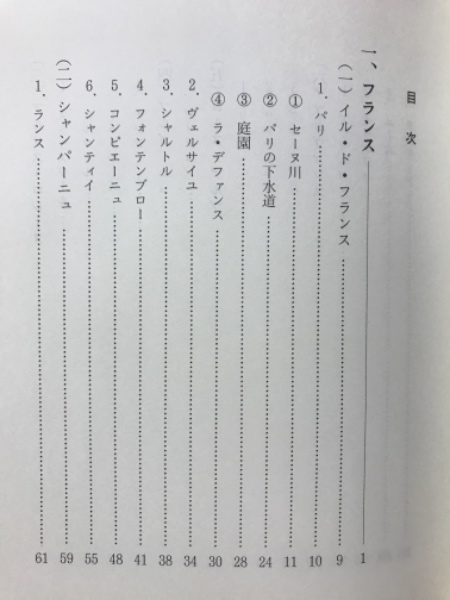 目次
一、フランス 1
(一) イル・ド・フランス 9
1. パリ 10
① セーヌ川 11
② パリの下水道 24
③ 庭園 28
④ ラ・デファンス 30
2. ヴェルサイユ 34
3. シャルトル 38
4. フォンテンブロー 41
5. コンピエーニュ 48
6. シャンティイ 55
(二) シャンパーニュ 59
1. ランス 61